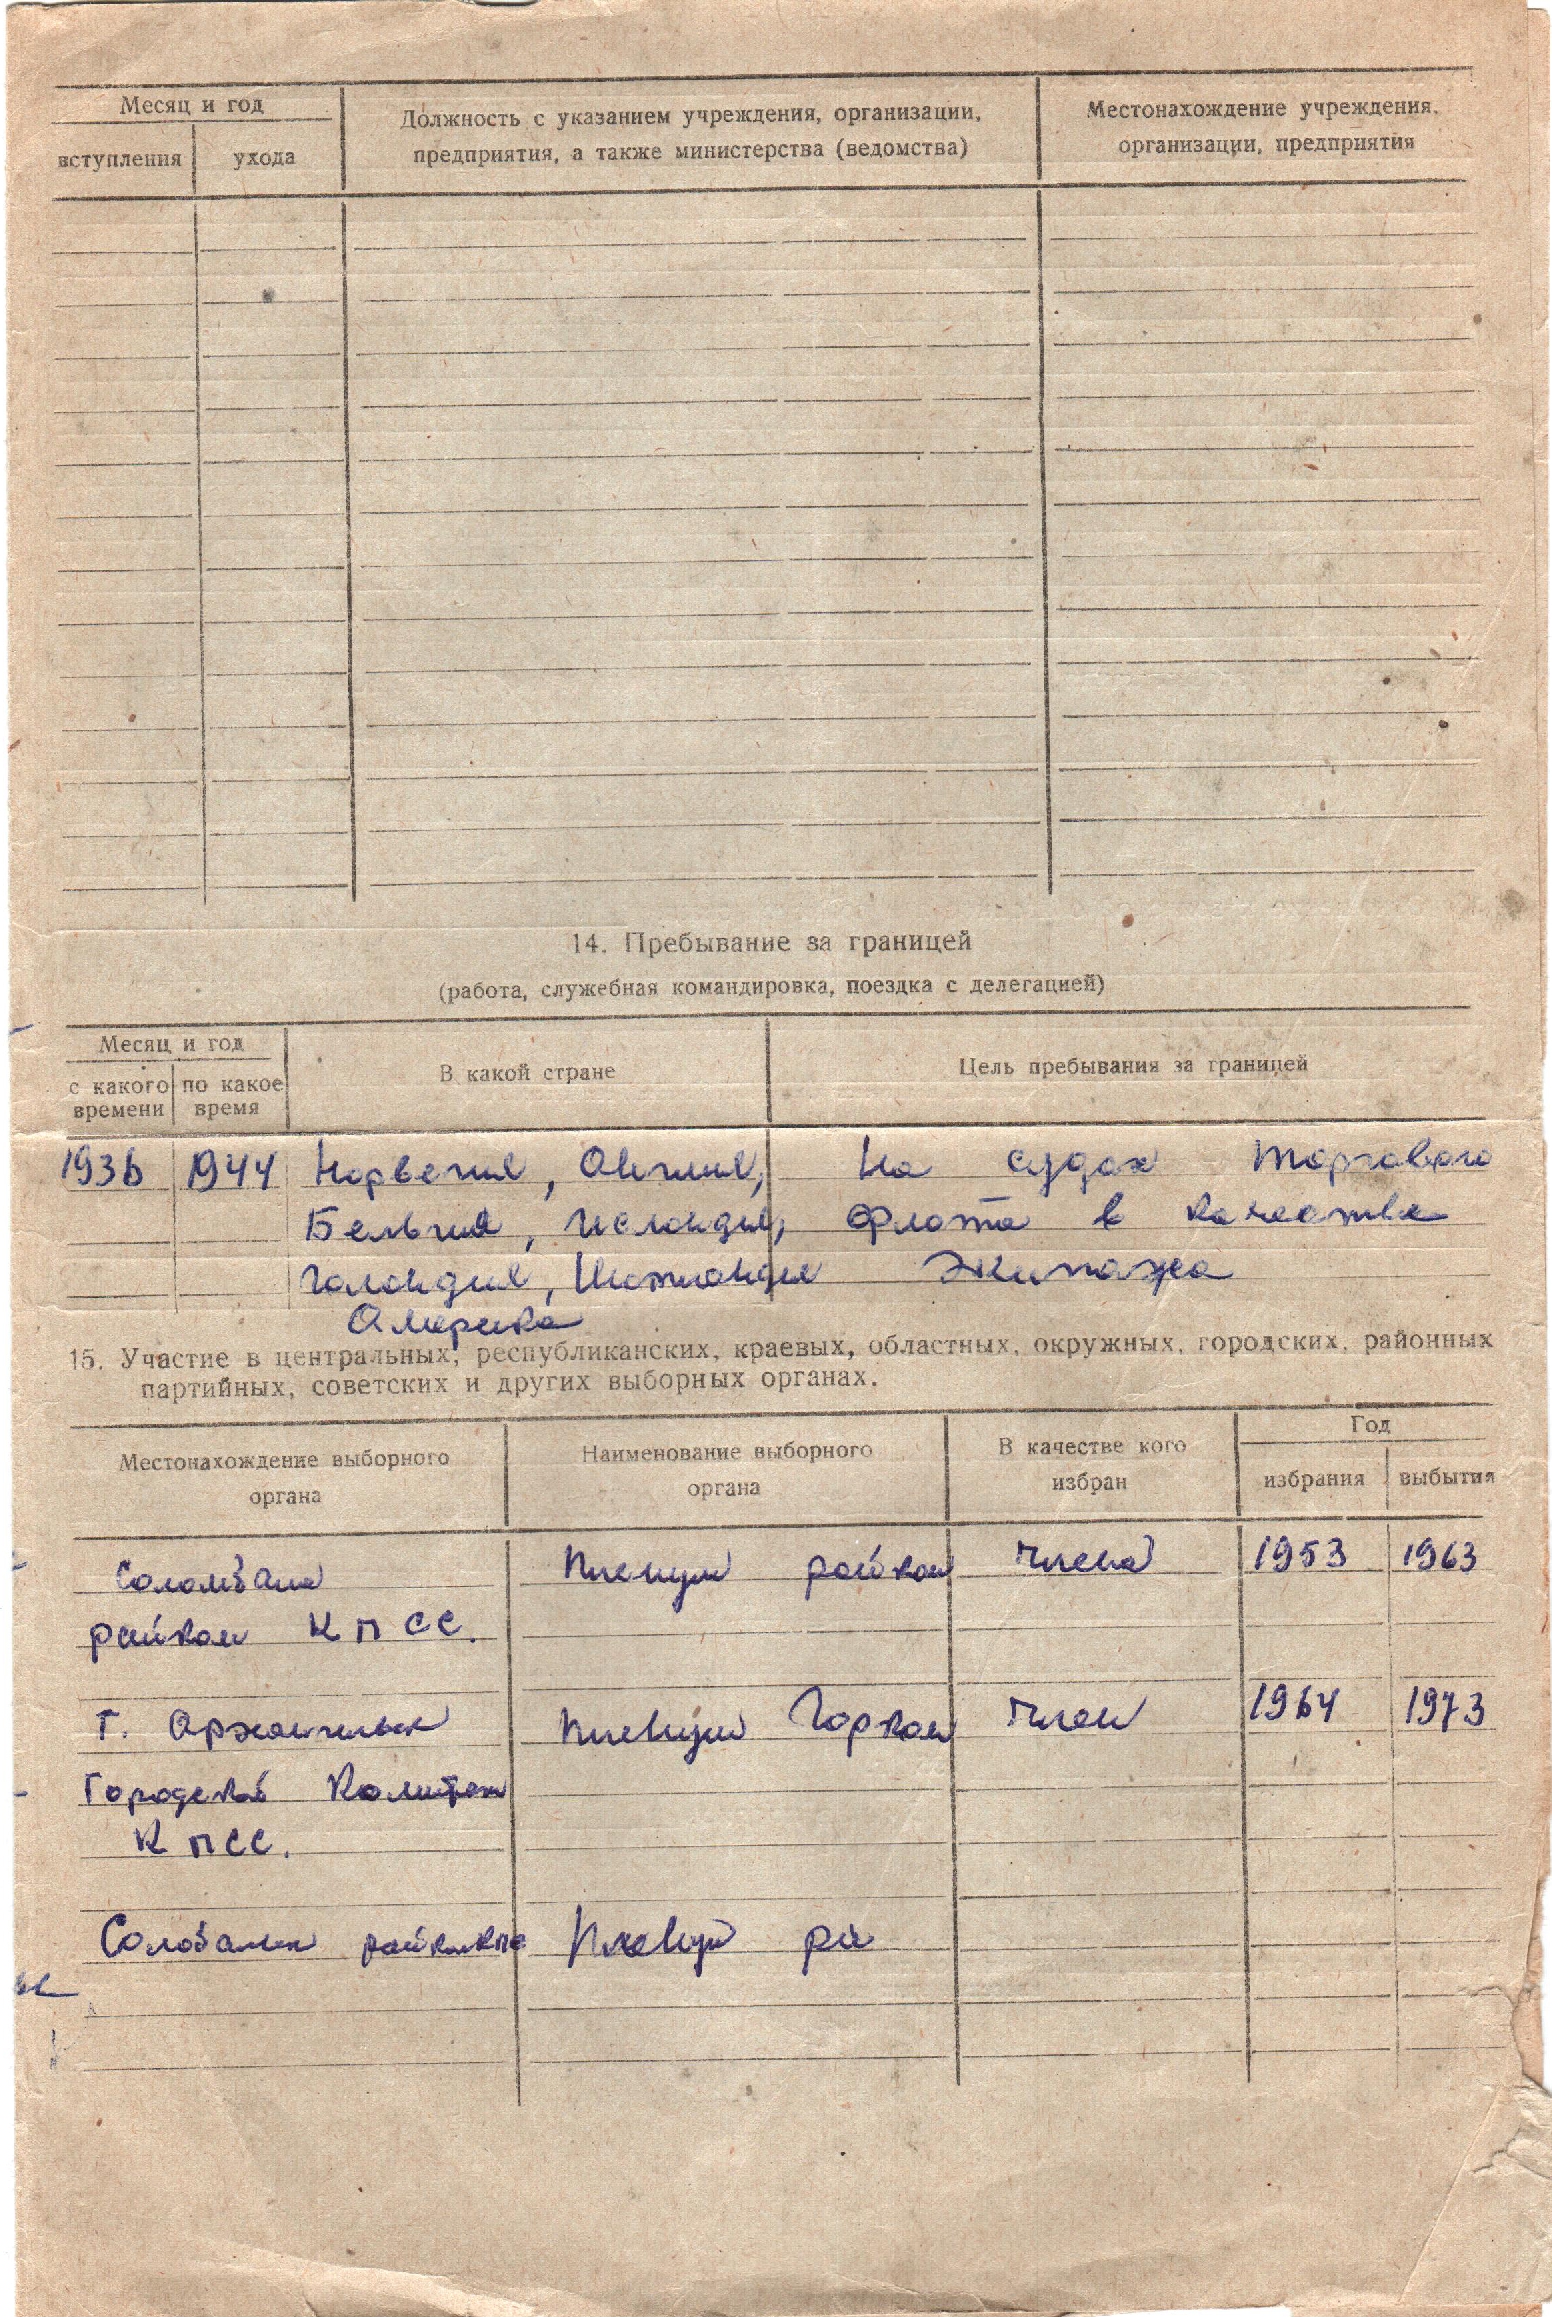 Месяц и год
вступления
ухода
Должность с указанием учреждения, организации,
предприятия, а также министерства (ведомства)
Местонахождение учреждения,
организации, предприятия
14. Пребывание за границей
(работа, служебная командировка, поездка с делегацией)
Месяц и год
с какого времени
по какое время
В какой стране
Цель пребывания за границей
1936 1944 Норвегия, Англия, На судах торгового
Бельгия, Исландия, флота в качестве
Голандия, Шотландия Экипажа
Америка
15. Участие в центральных, республиканских, краевых, областных, окружных, городских, районных
партийных, советских и других выборных органах.
Местонахождение выборного
органа
Наименование выборного
органа
В качестве кого
избран
Год
избрания
выбытия
Пленум райком члена 1953 1963
райком КПСС.
г. Пленум Горком член 1964 1973
Городской
КПСС.
Пленум